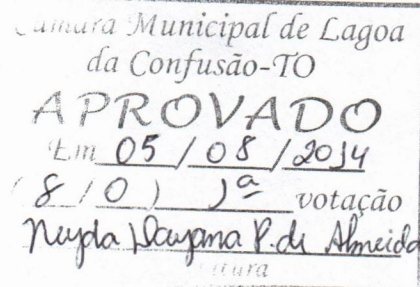 Câmara Municipal de Lagoa
da Confusão-TO
APROVADO
Em 05 / 08 / 2014
( 8 / 0 ) 1ª votação
Neyda Dayana P. de Almeida